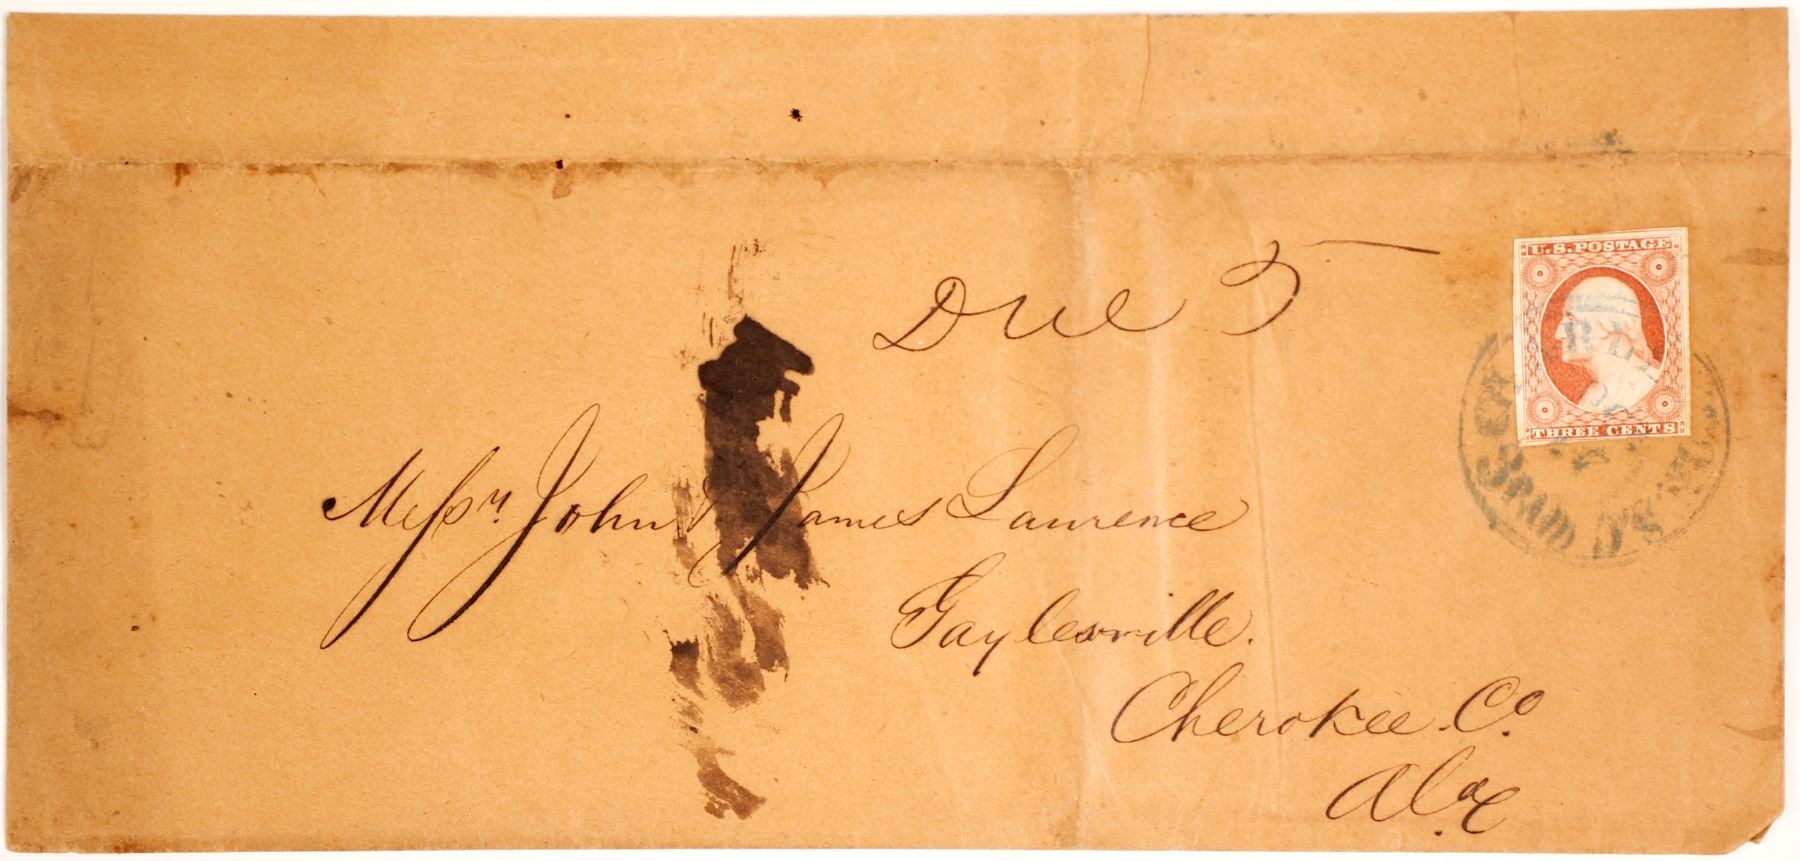 Due 5
U.S. POSTAGE
THREE CENTS
3 PAID
Messrs. John & James Lawrence
Gaylesville.
Cherokee. Co.
Ala